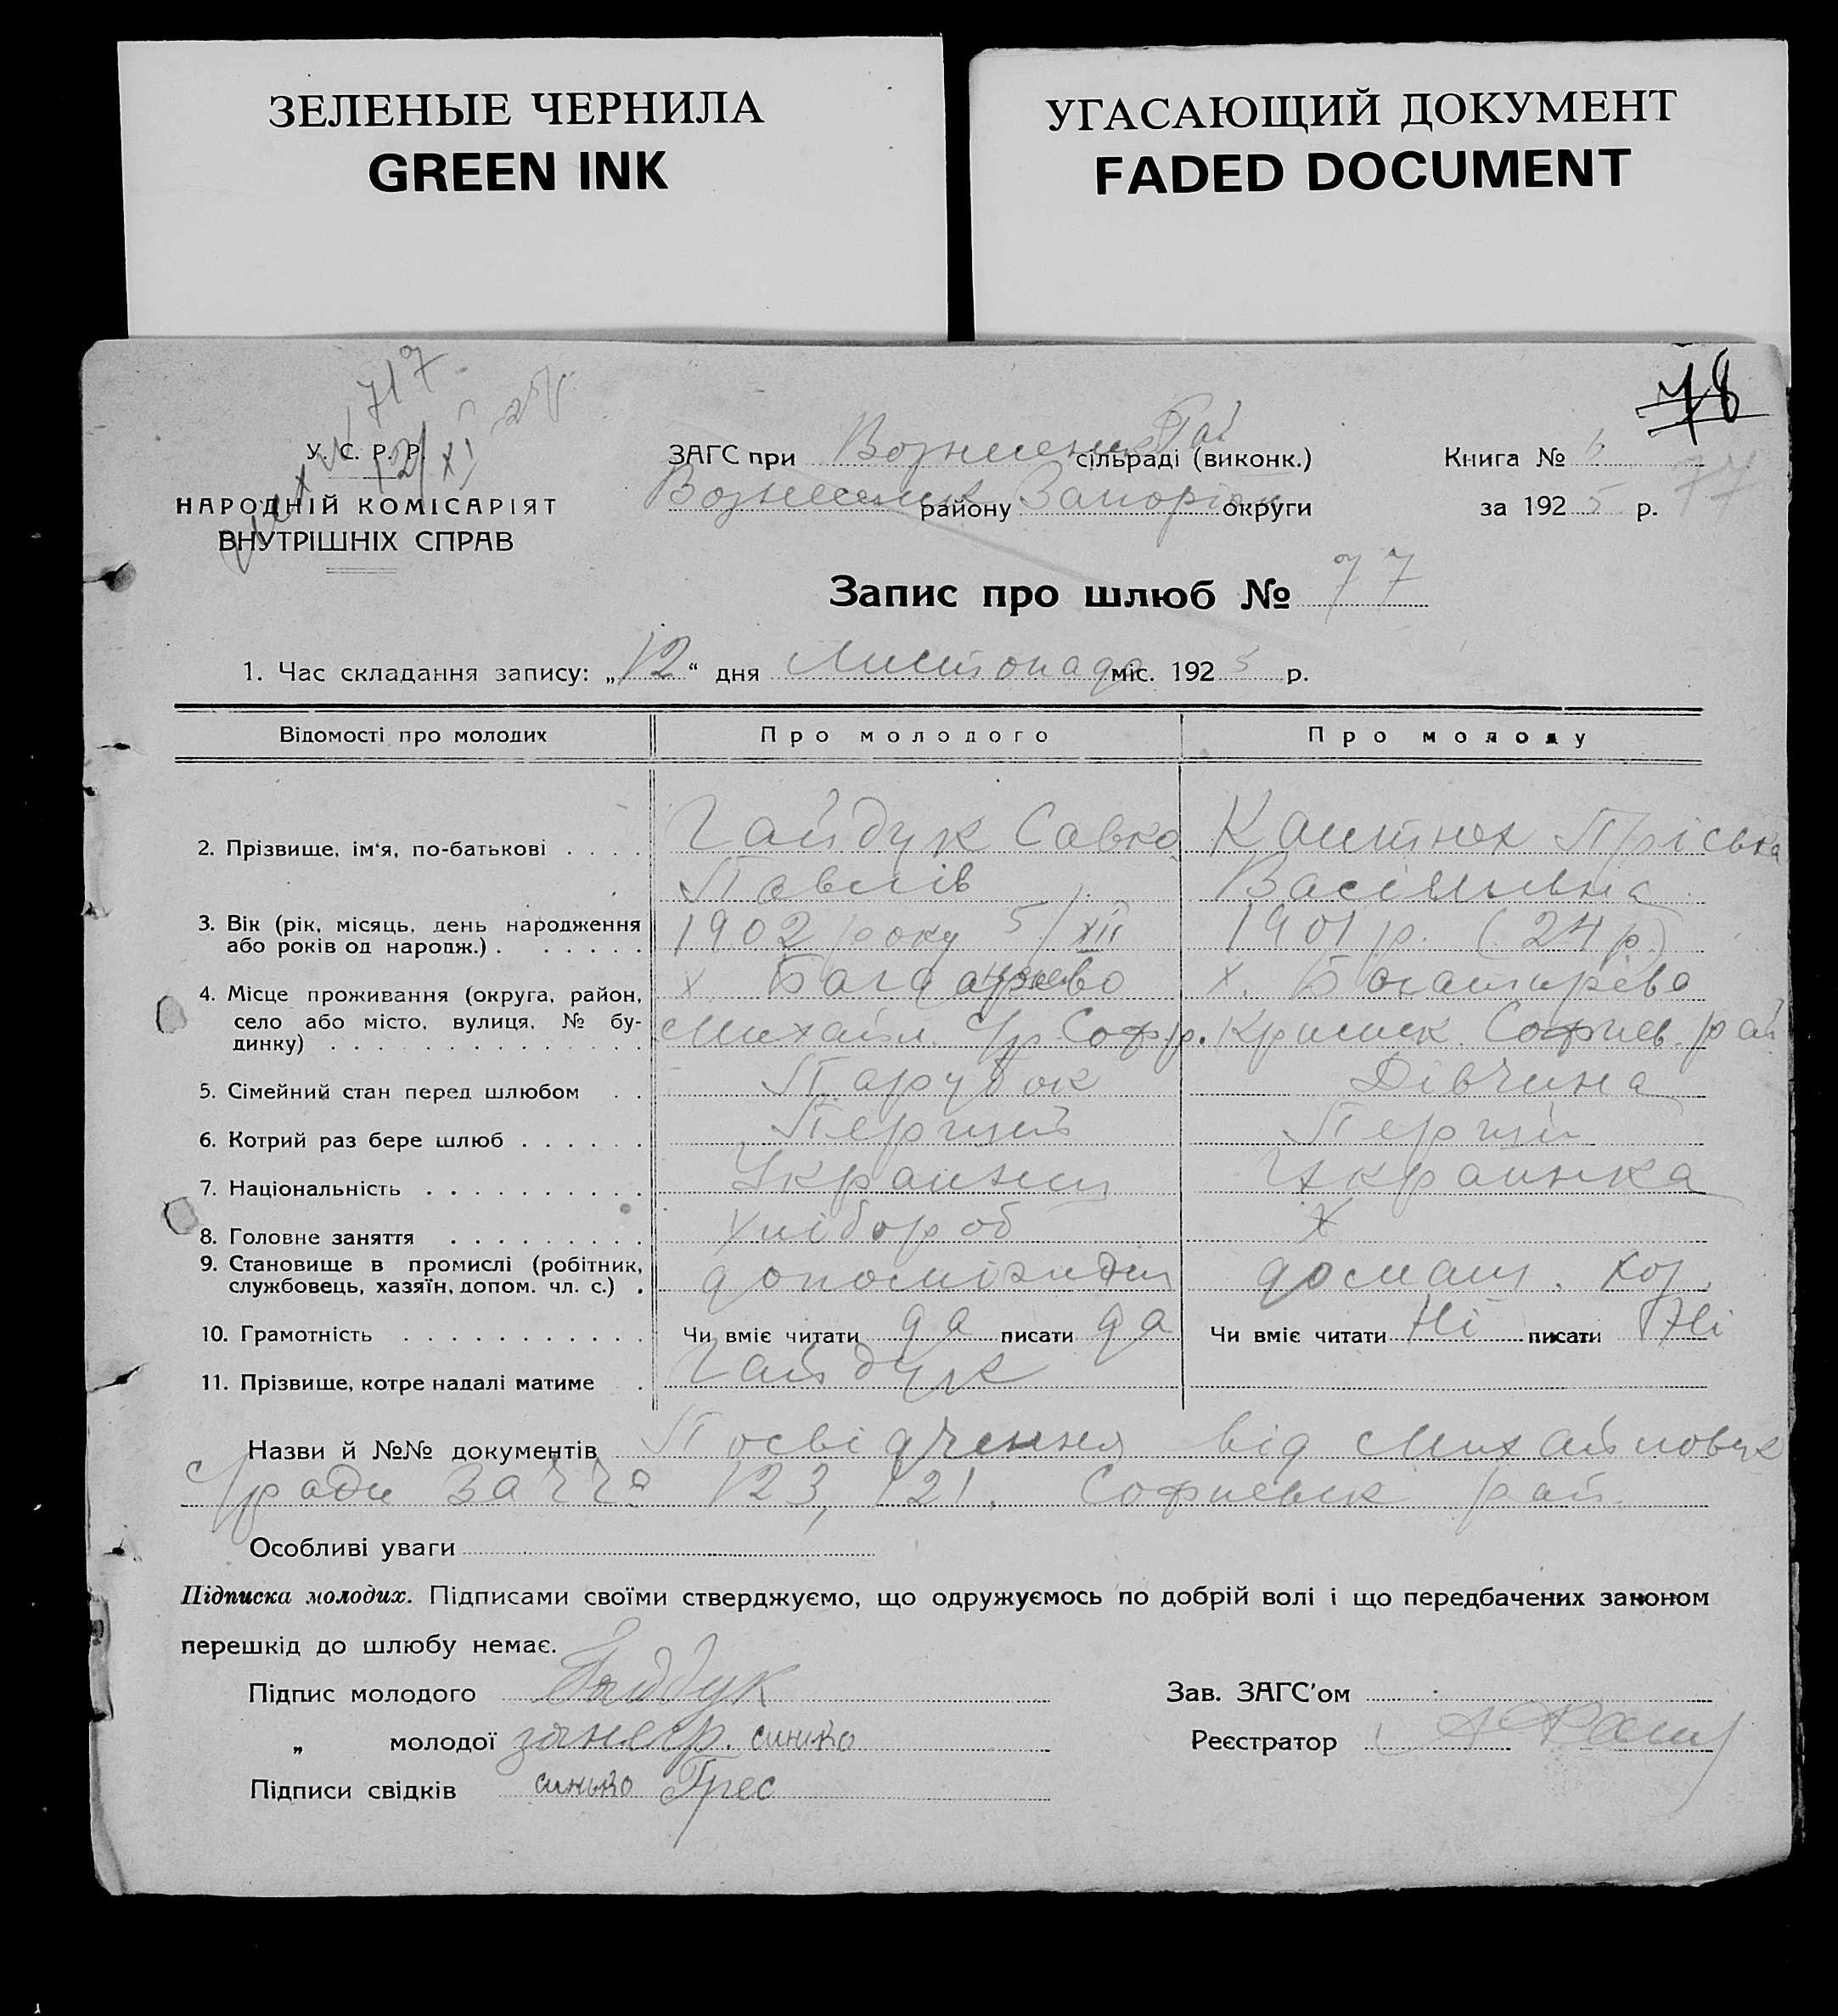 ЗЕЛЕНЫЕ ЧЕРНИЛА
GREEN INK
УГАСАЮЩИЙ ДОКУМЕНТ
FADED DOCUMENT
78
N 717
12/XI
У. С. Р. Р.
НАРОДНІЙ КОМІСАРІЯТ
ВНУТРІШНІХ СПРАВ
ЗАГС при сільраді (виконк.)
району округи
Книга №
за 1925 р.
77
Запис про шлюб № 77
1. Час складання запису: „12“ дня Листопада міс. 1925 р.
Відомості про молодих Про молодого Про молоду
2. Прізвище, ім'я, по-батькові Гайдук Савка Пріська
Павлів
3. Вік (рік, місяць, день народження
або років од народж.) 1902 року 5/XII 1901 р. (24 р)
4. Місце проживання (округа, район,
село або місто, вулиця, № бу-
динку)
х.
х.
Михайл. с/р. Соф. р. Софиев. рай
5. Сімейний стан перед шлюбом Парубок Дівчина
6. Котрий раз бере шлюб Перший Перший
7. Національність Украинец Украинка
8. Головне заняття хлібороб х
9. Становище в промислі (робітник,
службовець, хазяїн, допом. чл. с.) домаш. хоз.
10. Грамотність Чи вміє читати да писати да Чи вміє читати Ні писати Ні
11. Прізвище, котре надалі матиме Гайдук
Назви й №№ документів Посвідчення від Михайловск
с/ради за 123, 121. Софиевск рай.
Особливі уваги
Підписка молодих. Підписами своїми стверджуємо, що одружуємось по добрій волі і що передбачених законом
перешкід до шлюбу немає.
Підпис молодого Гайдук
„ молодої за негр. синко
Підписи свідків синько Грес
Зав. ЗАГС'ом
Реєстратор